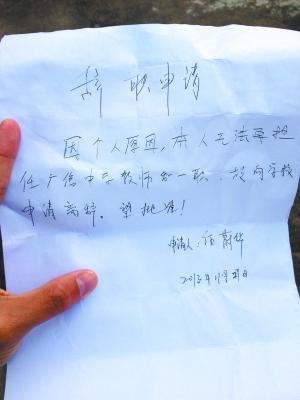 辞职申请
因个人原因,本人无法再担
任广信中学教师一职,故向学校
申请离辞。望批准!
申请人:
2013年11月